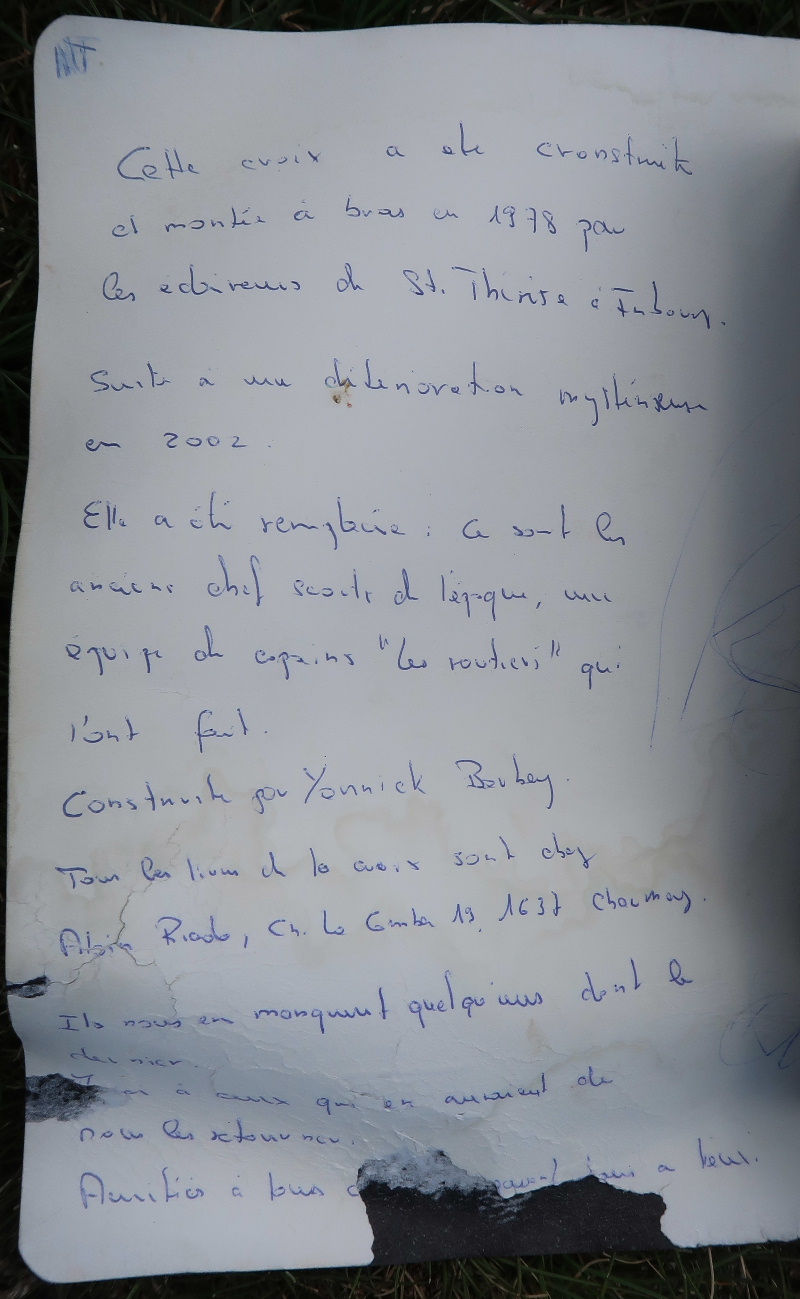 NT.
Cette croix a ete cronstruite
et montée à bras en 1978 par
les éclaireurs de St. Thérèse à Fribourg.
Suite à une déterioration mystérieuse
en 2002.
Elle a été remplacée : ce sont les
anciens chef scouts de l'époque, une
équipe de copains "les routiers" qui
l'ont fait.
Construite par Yannick Barbey.
Tous les livres de la croix sont chez
Riedo, Ch. La Comba 19, 1637 Charmey.
Ils nous en manquent quelqu'uns dont le
dernier.
à ceux qui en auraient de
nous les retourner.
Amitiés à tous